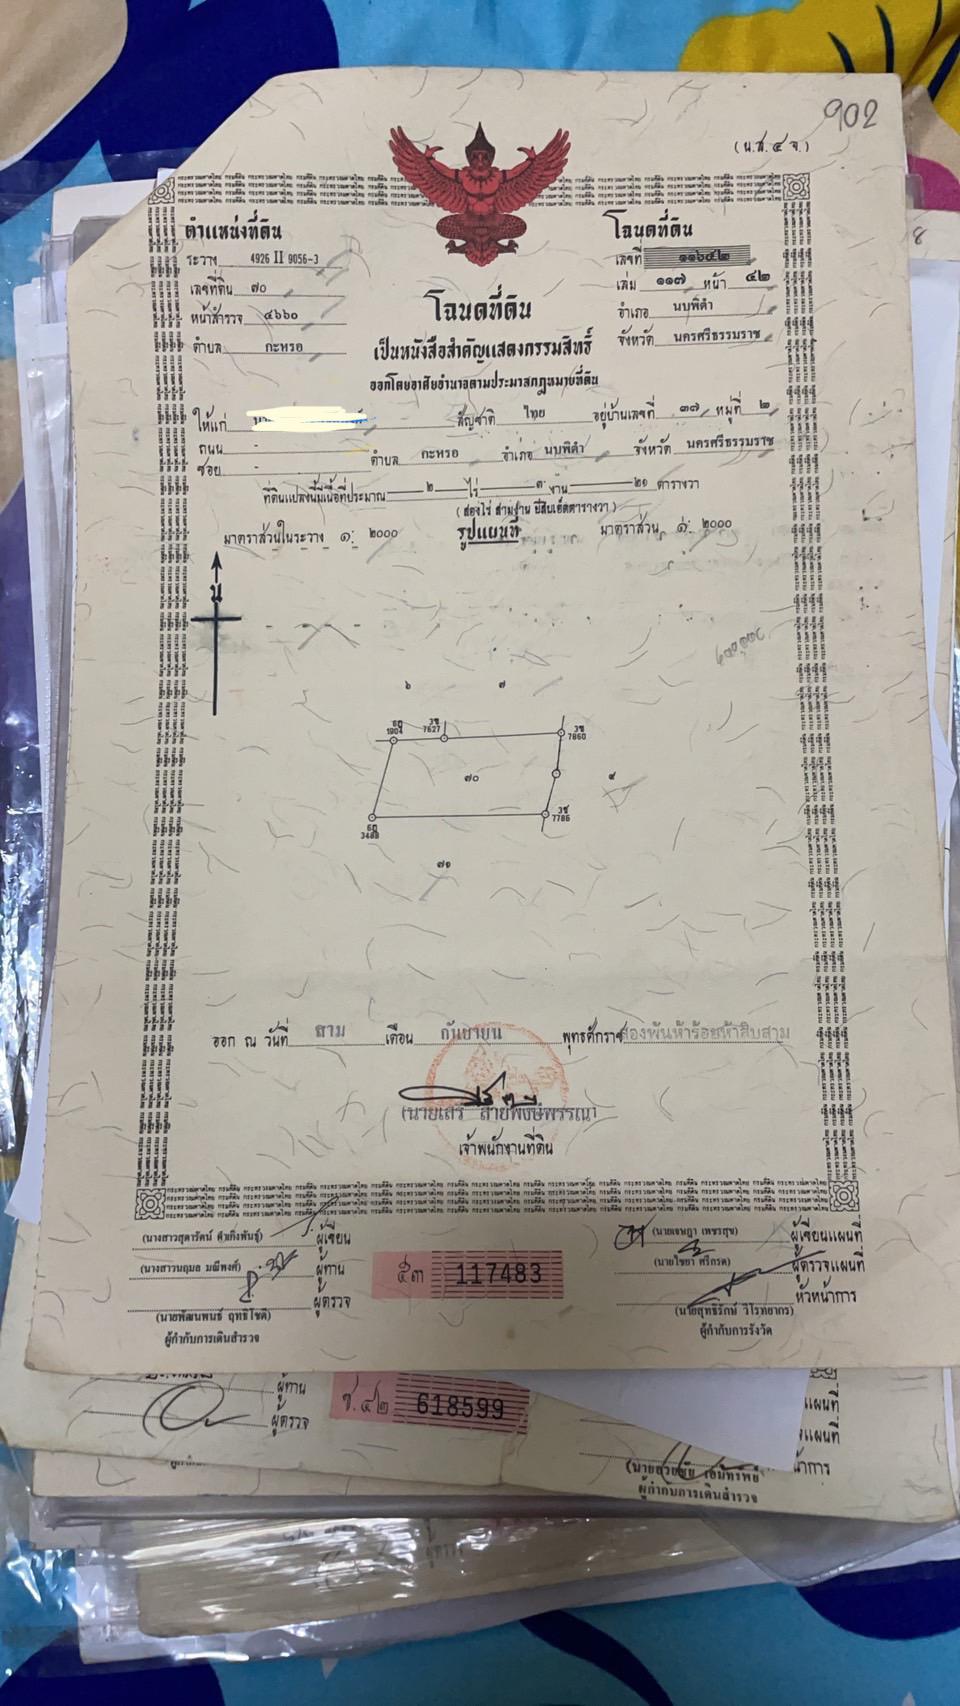 902
(น.ส.๔ จ.)
ตำแหน่งที่ดิน
ระวาง 4926 II 9056-3
เลขที่ดิน ๗๐
หน้าสำรวจ ๔๖๖๐
ตำบล กะหรอ
โฉนดที่ดิน
เลขที่ ๑๑๖๔๒
เล่ม ๑๑๗ หน้า ๔๒
อำเภอ นบพิตำ
จังหวัด นครศรีธรรมราช
โฉนดที่ดิน
เป็นหนังสือสำคัญแสดงกรรมสิทธิ์
ออกโดยอาศัยอำนาจตามประมวลกฎหมายที่ดิน
ให้แก่ สัญชาติ ไทย อยู่บ้านเลขที่ ๓๗ หมู่ที่ ๒
ถนน -
ซอย - ตำบล กะหรอ อำเภอ นบพิตำ จังหวัด นครศรีธรรมราช
ที่ดินแปลงนี้มีเนื้อที่ประมาณ ๒ ไร่ ๓ งาน ๒๑ ตารางวา
(สองไร่ สามงาน ยี่สิบเอ็ดตารางวา)
มาตราส่วนในระวาง ๑: ๒๐๐๐ รูปแผนที่ มาตราส่วน ๑: ๒๐๐๐
น
๖ ๗
6ฎ
1904
3ซ
7627
3ซ
7860
๗๐
๙
6ฎ
3488
3ซ
7786
๗๑
ออก ณ วันที่ สาม เดือน กันยายน พุทธศักราช สองพันห้าร้อยห้าสิบสาม
(นายเสรี สายพงษ์พรรณ)
เจ้าพนักงานที่ดิน
ผู้เขียน
ผู้ทาน
ผู้ตรวจ
ผู้กำกับการเดินสำรวจ
๕๓ 117483
(นายเจษฎา เพชรสุข) ผู้เขียนแผนที่
(นายไชยา ศรีกรด) ผู้ตรวจแผนที่
หัวหน้าการ
(นายสุทธิรักษ์ วิโรทยากร)
ผู้กำกับการรังวัด
ผู้ทาน
ผู้ตรวจ
ช.๔๒ 618599
ผู้กำกับการเดินสำรวจ